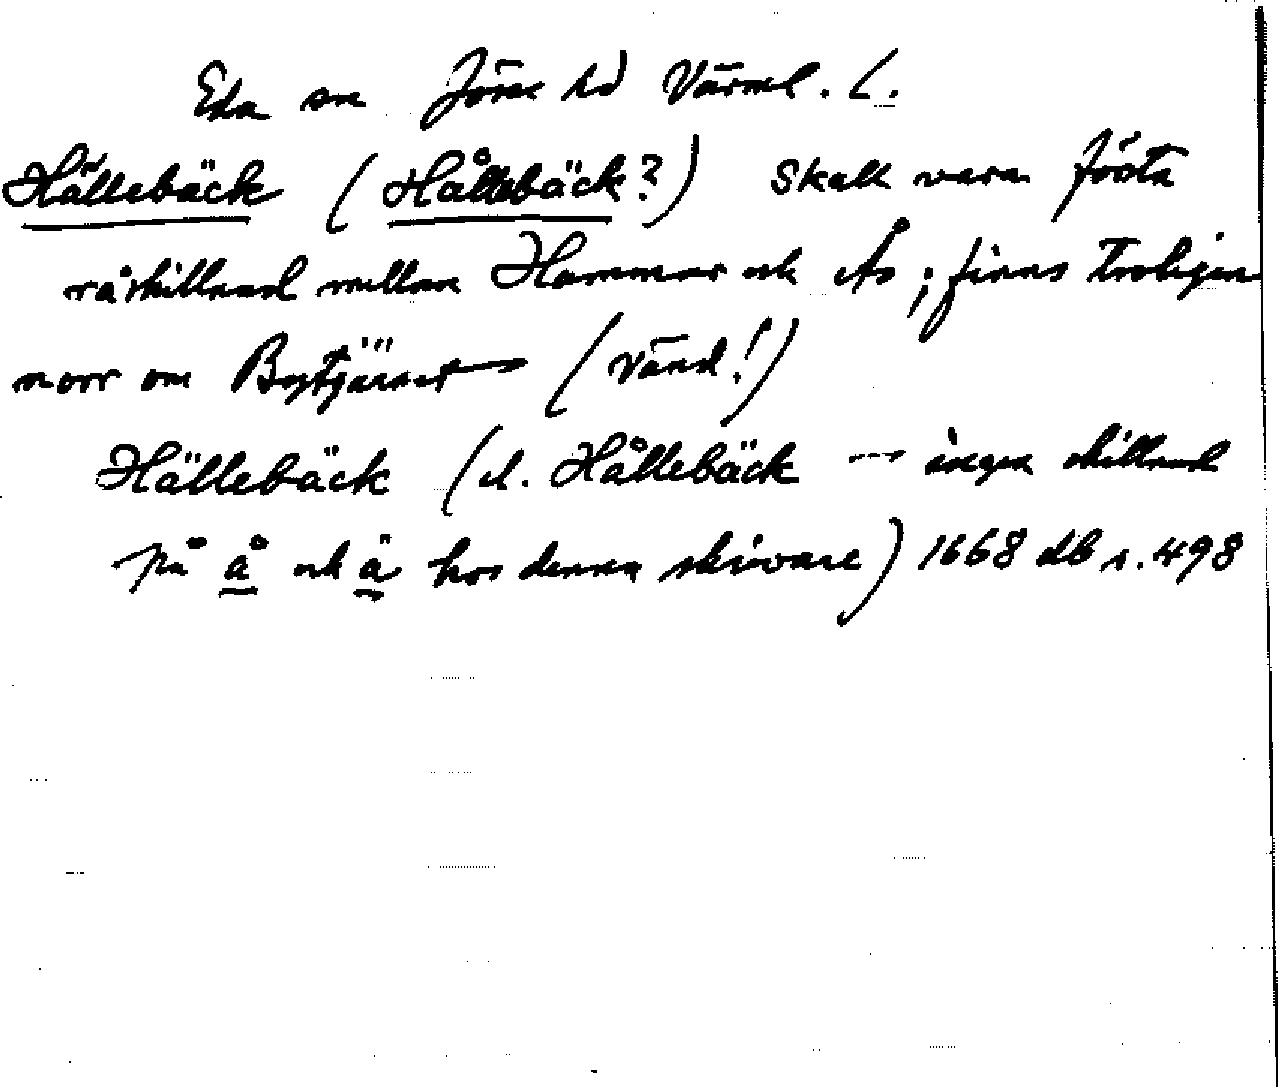 Eda sn Jösse hd Värml. L.
Hällebäck (Hållebäck?) Skall vara första
råskillnad mellan Hammar och Ås; finns troligen
norr om Bytjärnet (vänd!)
Hällebäck (el. Hållebäck — ingen skillnad
på å och ä hos denna skrivare) 1668 db s. 498